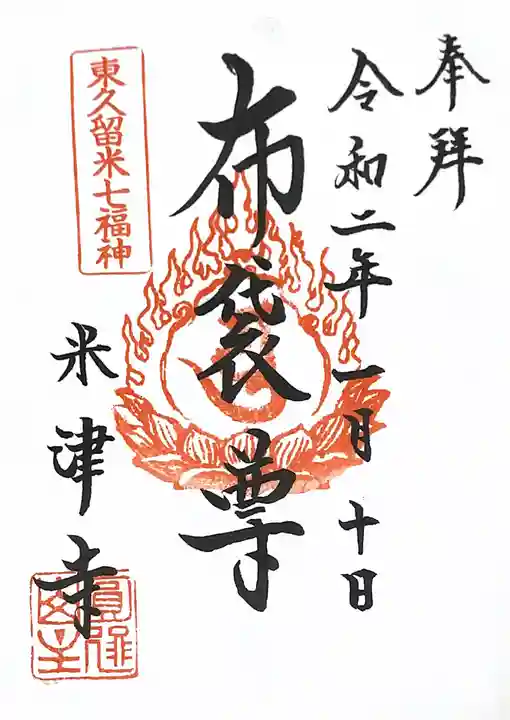 奉拝
令和二年一月十日
布袋尊
東久留米七福神
米津寺